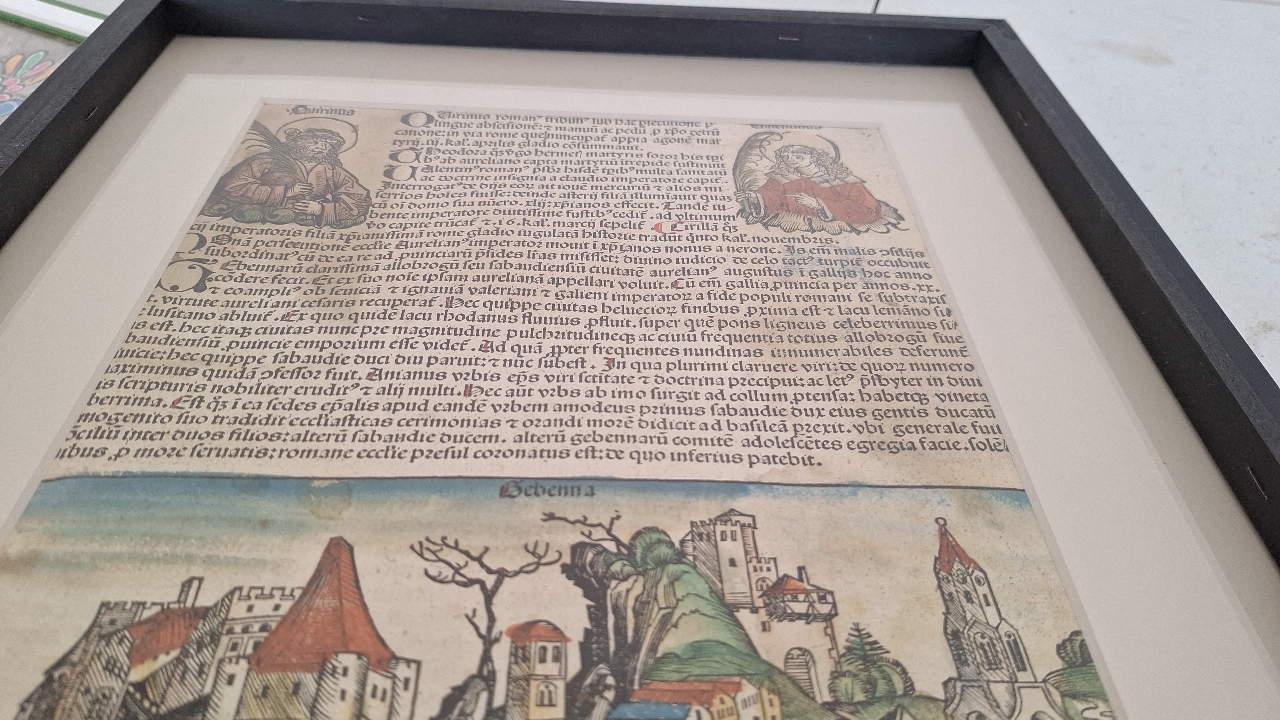 Quirinus
Quirinus roman⁹ tribun⁹ sub hac
lingue abscisionē: ⁊ manuū ac pedū ꝓ xp̄o
catione: in via rome que nuncupat̄ appia agonē mar
tyrij. iij. kal̄. aprilis gladio cōsummauit.
heodora
ab aureliano capta martyriū itrepide sustinuit
Ualentin⁹ roman⁹ multa sanitatū
insignia a claudio imperatore capit̄
Interrogat⁹ de dijs ait iouē mercuriū ⁊ alios mi
serrios hoies fuisse: deinde asterij filiā illuminauit
oī domo sua xp̄ianos effecit. Tandē iu-
bente imperatore fustib⁹ cedit̄. ad vltimum
capite ⁊ .16. kal̄. marcij sepelit̄. Cirilla
cij imperatoris filia rome gladio iugulata historie tradūt q̄nto kal̄. nouembris.
Nonā persecutione ecclie Aurelian⁹ imperator mouit ī xp̄ianos nonus a nerone. Is em̄ malis
subordinat⁹ cū de ea re ad prouinciarū lr̄as misisset: diuino iudicio de celo turpiter occubuit
Gebennarū clarissimā allobrogū seu sabaudiensiū ciuitatē aurelian⁹ augustus ī gallijs hoc anno
Et ex suo aurelianā appellari voluit. Cū em̄ gallia ꝓuincia per annos .xx.
ob ⁊ ignauiā valeriani ⁊ galieni imperatorꝝ a fide populi romani se subtraxis
t. virtute aureliani cesaris recuperat̄. Hec quippe ciuitas heluecioꝝ finibus ꝓxima est ⁊ lacu lemāno
lusitano abluit̄. Ex quo quidē lacu rhodanus fluuius ꝓfluit. super quē pons ligneus celeberrimus
s est. hec itaqꝫ ciuitas nunc pre magnitudine pulchritudineqꝫ ac ciuiū frequentia totius allobrogū siue
baudiensiū ꝓuincie emporium esse videt̄. Ad quā ꝓpter frequentes nundinas innumerabiles deferunt̄
hec quippe sabaudie duci diu paruit: ⁊ nūc subest. In qua plurimi claruere viri: de quoꝝ numero
aximinus quidā ꝓfessor fuit. Amanus vrbis ep̄s viri sc̄titate ⁊ doctrina
is scripturis nobiliter erudit⁹ ⁊ alij multi. Hec aut̄ vrbs ab imo surgit ad collum ꝓtensa: habetqꝫ vineta
berrima. Est ī ea sedes ep̄alis apud eandē vrbem amodeus primus sabaudie dux eius gentis ducatū
mogenito suo tradidit eccl̄iasticas cerimonias ⁊ orandi morē didicit ad basileā prexit. vbi generale fuit
ōciliū inter duos filios: alterū sabaudie ducem. alterū gebennarū comitē adolescētes egregia facie.
ibus ꝓ more seruatis: romane ecclie presul coronatus est: de quo inferius patebit.
Gebenna